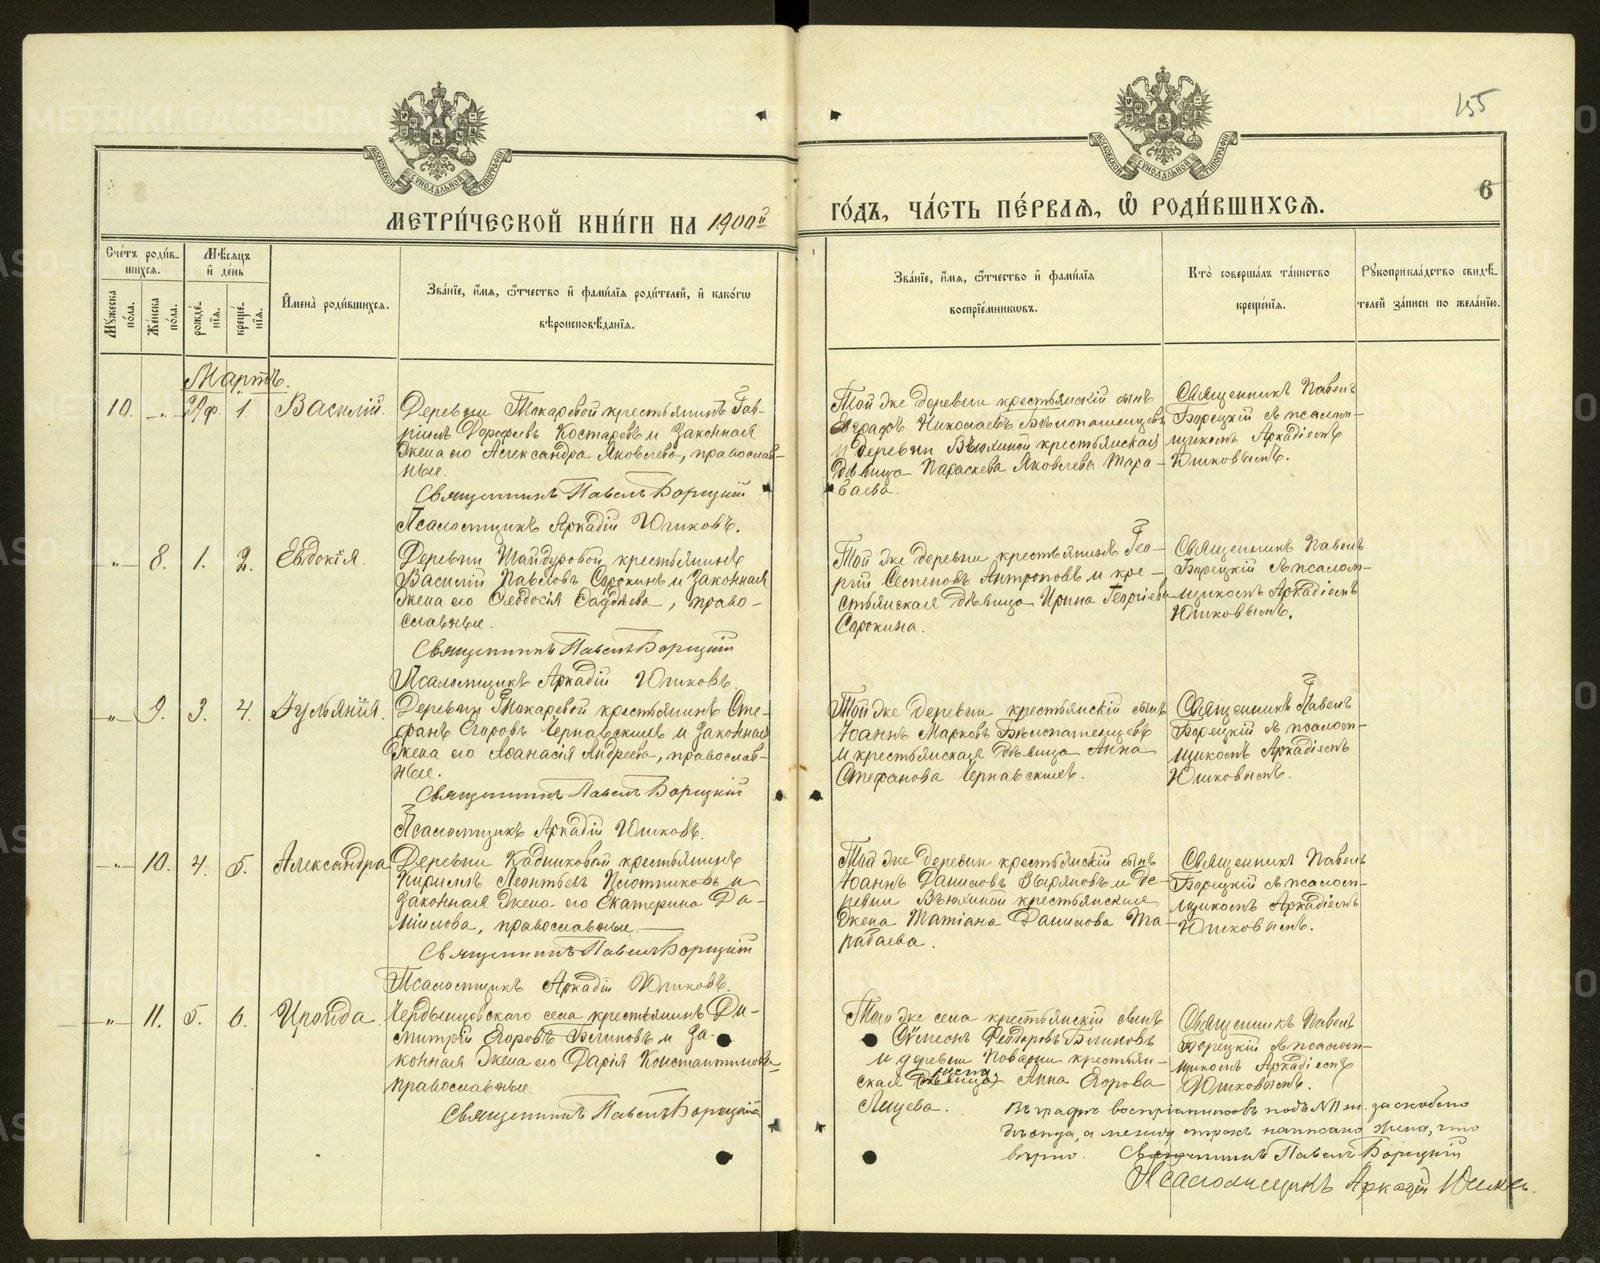 155
6
МОСКОВСКОЙ СѴНОДАЛЬНОЙ ТИПОГРАФІИ
МОСКОВСКОЙ СѴНОДАЛЬНОЙ ТИПОГРАФІИ
МЕТРИ́ЧЕСКОЙ КНИ́ГИ НА 1900й ГО́ДЪ, ЧА́СТЬ ПЕ́РВАЯ, Ѽ РОДИ́ВШИХСЯ.
Сче́тъ роди́в-
шихся.
Мꙋ́жеска по́ла.
Же́нска по́ла.
Мѣ́сяцъ
и҆ де́нь
рожде́-
нїя.
креще́-
нїя.
И҆мена̀ роди́вшихся.
Зва́нїе, и҆́мя, ѻ҆́тчество и҆ фамѝлїя роди́телей, и҆ како́гѡ
вѣроисповѣ́данїя.
Зва́нїе, и҆́мя, ѻ҆́тчество и҆ фамѝлїя
воспрїе́мникѡвъ.
Кто̀ соверша́лъ та́инство
креще́нїя.
Рꙋкоприкла́дство свидѣ́-
телей за́писи по жела́нїю.
Мартъ.
10. -„- 29ф. 1. Василій.
Деревни Токаревой крестьянинъ Гав-
ріилъ Дорофеевъ Костаревъ и законная
жена его Александра Яковлева, православ-
ные.
Священникъ Павелъ Борецкій
Псаломщикъ Аркадій Юшковъ.
Той же деревни крестьянскій сынъ
Евграфъ Николаевъ Бѣлопашенцевъ
и деревни Вѣюшиной крестьянская
дѣвица Параскева Яковлева Тара-
баева.
Священникъ Павелъ
Борецкій съ псалом-
щикомъ Аркадіемъ
Юшковымъ.
-„- 8. 1. 2. Евдокія.
Деревни Шайдуровой крестьянинъ
Василій Павловъ Сорокинъ и законная
жена его Ѳеодосія Ѳаддѣева, право-
славные.
Священникъ Павелъ Борецкій
Псаломщикъ Аркадій Юшковъ
Той же деревни крестьянинъ Геор-
гій Антроповъ и кре-
стьянская дѣвица Ирина Георгіева
Сорокина.
Священникъ Павелъ
Борецкій съ псалом-
щикомъ Аркадіемъ
Юшковымъ.
-„- 9. 3. 4. Іульянія.
Деревни Токаревой крестьянинъ Сте-
фанъ Егоровъ Чернавскихъ и законная
жена его Аѳанасія Андреева, православ-
ные.
Священникъ Павелъ Борецкій
Псаломщикъ Аркадій Юшковъ.
Той же деревни крестьянскій сынъ
Іоаннъ Марковъ Бѣлопашенцевъ
и крестьянская дѣвица Анна
Стефанова Чернавскихъ.
Священникъ Павелъ
Борецкій съ псалом-
щикомъ Аркадіемъ
Юшковымъ.
-„- 10. 4. 5. Александра
Деревни Кадниковой крестьянинъ
Кириллъ Леонтьевъ Плотниковъ и
законная жена его Екатерина Да-
ніилова, православные.
Священникъ Павелъ Борецкій
Псаломщикъ Аркадій Юшковъ.
Той же деревни крестьянскій сынъ
Іоаннъ Даниловъ Зыряновъ и де-
ревни Вѣюшиной крестьянская
жена Татіана Данилова Та-
рабаева.
Священникъ Павелъ
Борецкій съ псалом-
щикомъ Аркадіемъ
Юшковымъ.
-„- 11. 5. 6. Ираида.
Чердынцовскаго села крестьянинъ Ди-
митрій Егоровъ Блиновъ и за-
конная жена его Дарія Константинова
православные.
Священникъ Павелъ Борецкій
Того же села крестьянскій сынъ
Сѵмеонъ Ѳеодоровъ Блиновъ
и деревни Поварни крестьян-
жена
ская дѣвица Анна Егорова
Лещева.
Священникъ Павелъ
Борецкій съ псалом-
щикомъ Аркадіемъ
Юшковымъ.
Въ графѣ воспріемниковъ подъ № 11 ж. заскоблено
дѣвица, а между строкъ написано жена, что
вѣрно. Священникъ Павелъ Борецкій
Псаломщикъ Аркадій Юшковъ.
METRIKI.GASO-URAL.RU